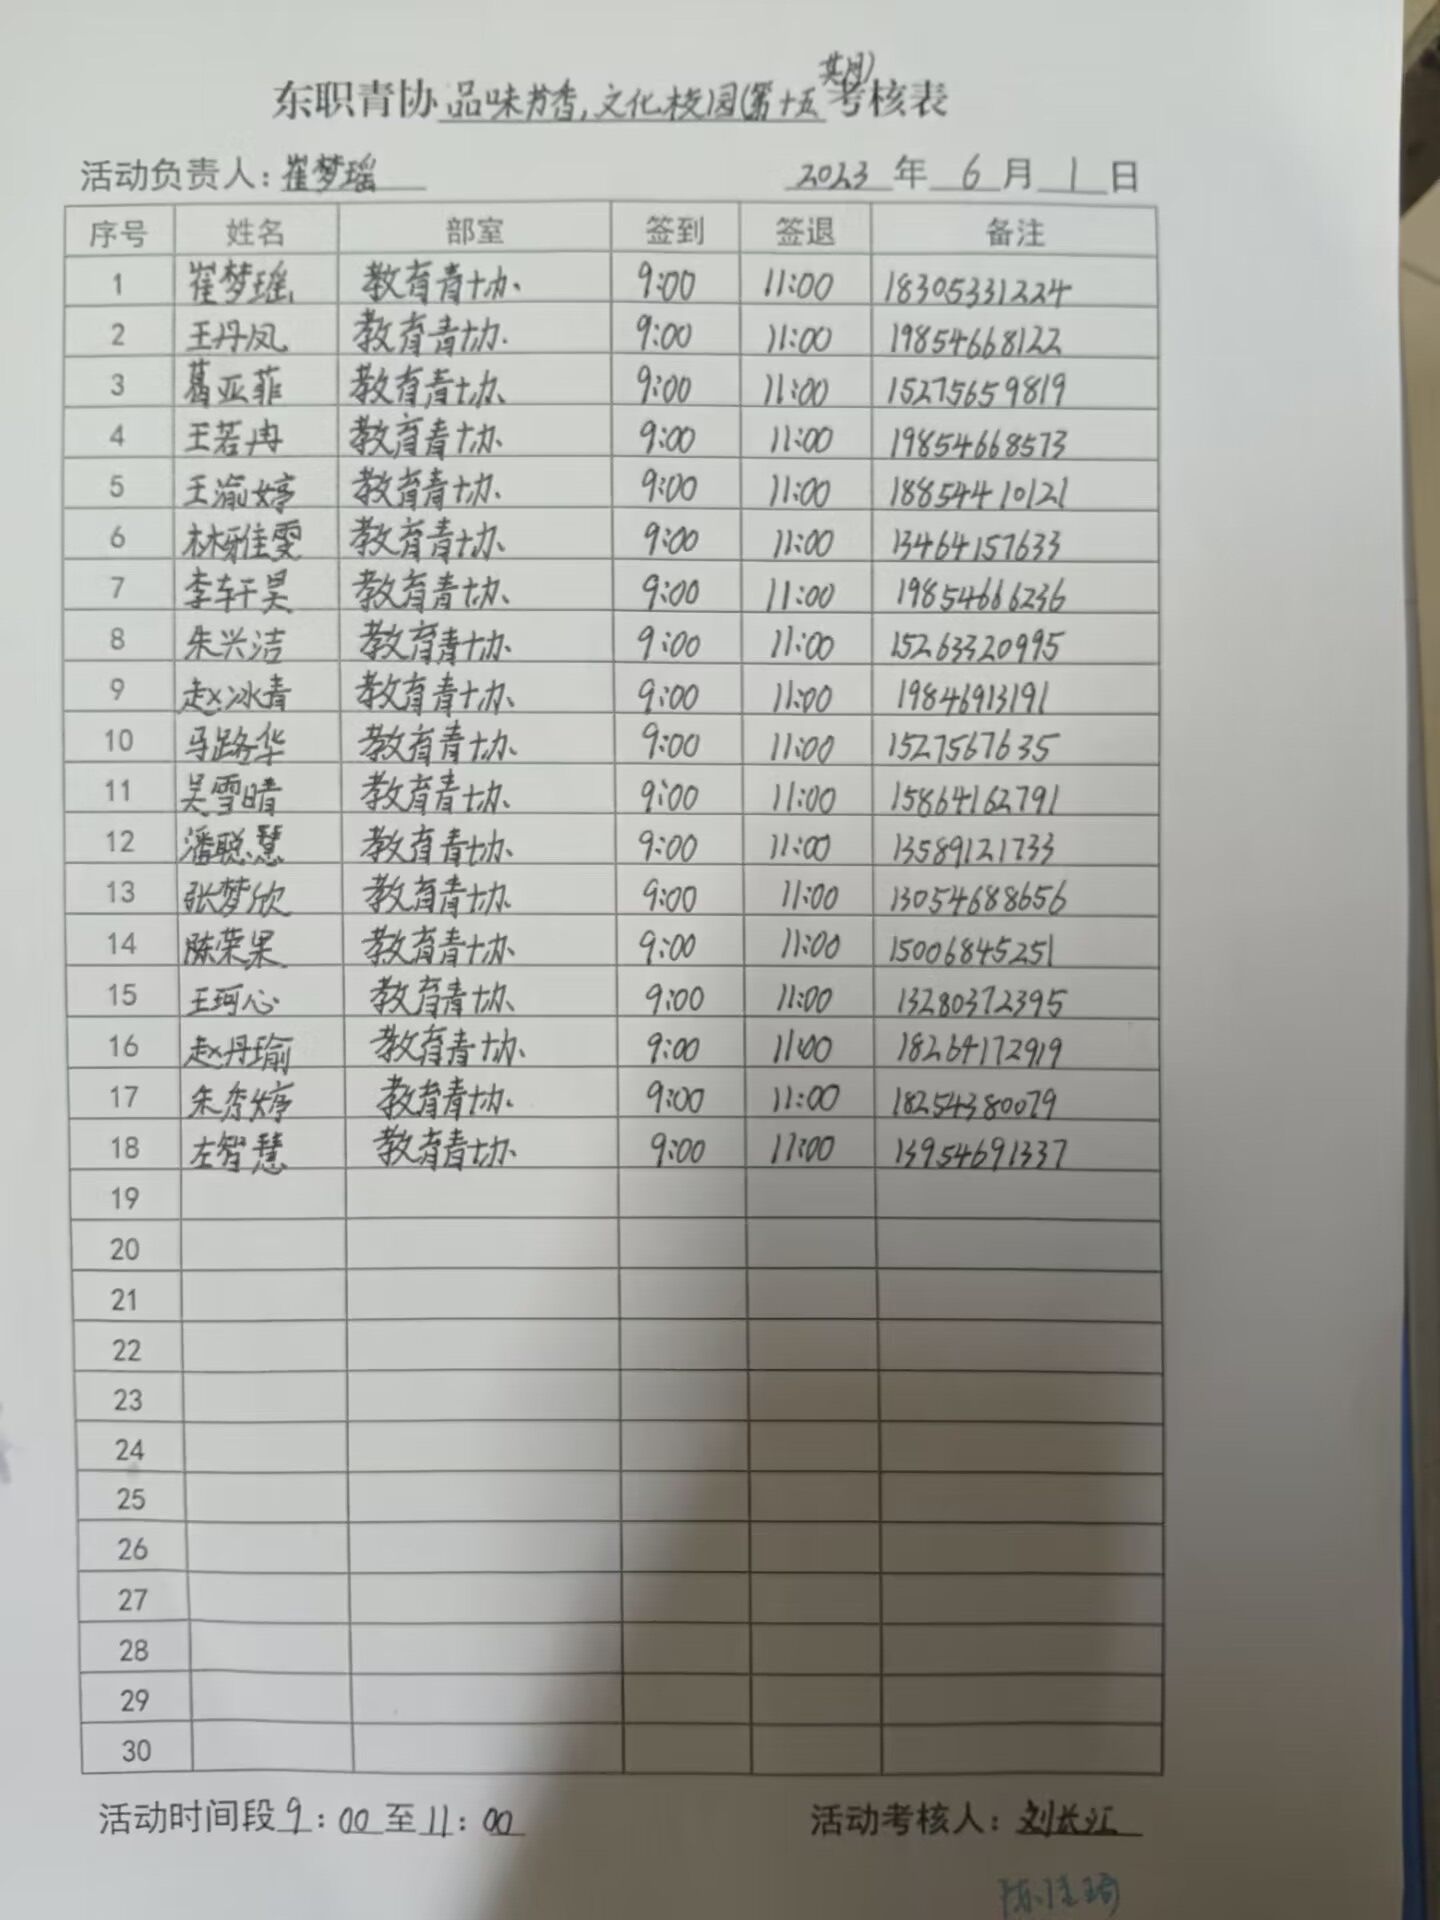 期)
东职青协品味书香,文化校园(第十五考核表
活动负责人:崔梦瑶 2023年6月1日
序号 姓名 部室 签到 签退 备注
1 崔梦瑶 教育青协 9:00 11:00 18305331224
2 王丹凤 教育青协 9:00 11:00 19854668122
3 葛亚菲 教育青协 9:00 11:00 15275659819
4 王若冉 教育青协 9:00 11:00 19854668573
5 王渝婷 教育青协 9:00 11:00 18854410121
6 林雅雯 教育青协 9:00 11:00 13464157633
7 李轩昊 教育青协 9:00 11:00 19854666236
8 朱兴洁 教育青协 9:00 11:00 15263320995
9 赵冰青 教育青协 9:00 11:00 19846913191
10 马路华 教育青协 9:00 11:00 1527567635
11 吴雪晴 教育青协 9:00 11:00 15864162791
12 潘聪慧 教育青协 9:00 11:00 13589121733
13 张梦欣 教育青协 9:00 11:00 13054688656
14 陈荣果 教育青协 9:00 11:00 15006845251
15 王珂心 教育青协 9:00 11:00 13280372395
16 赵丹瑜 教育青协 9:00 11:00 18264172919
17 朱秀婷 教育青协 9:00 11:00 18254380079
18 左智慧 教育青协 9:00 11:00 13954691337
19
20
21
22
23
24
25
26
27
28
29
30
活动时间段9:00至11:00 活动考核人:刘长汇